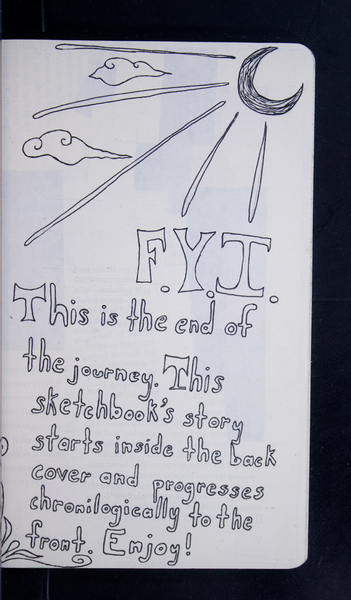 F.Y.I.
This is the end of
the journey. This
sketchbook's story
starts inside the back
cover and progresses
chronilogically to the
front. Enjoy!